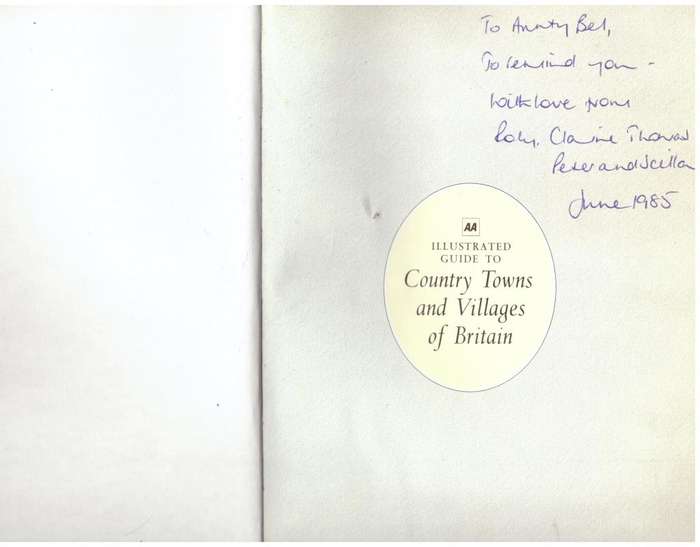 To Aunty Bel,
To remind you -
With love from
Roly, Claire Thomas
Peter and Scilla
June 1985
AA
ILLUSTRATED
GUIDE TO
Country Towns
and Villages
of Britain